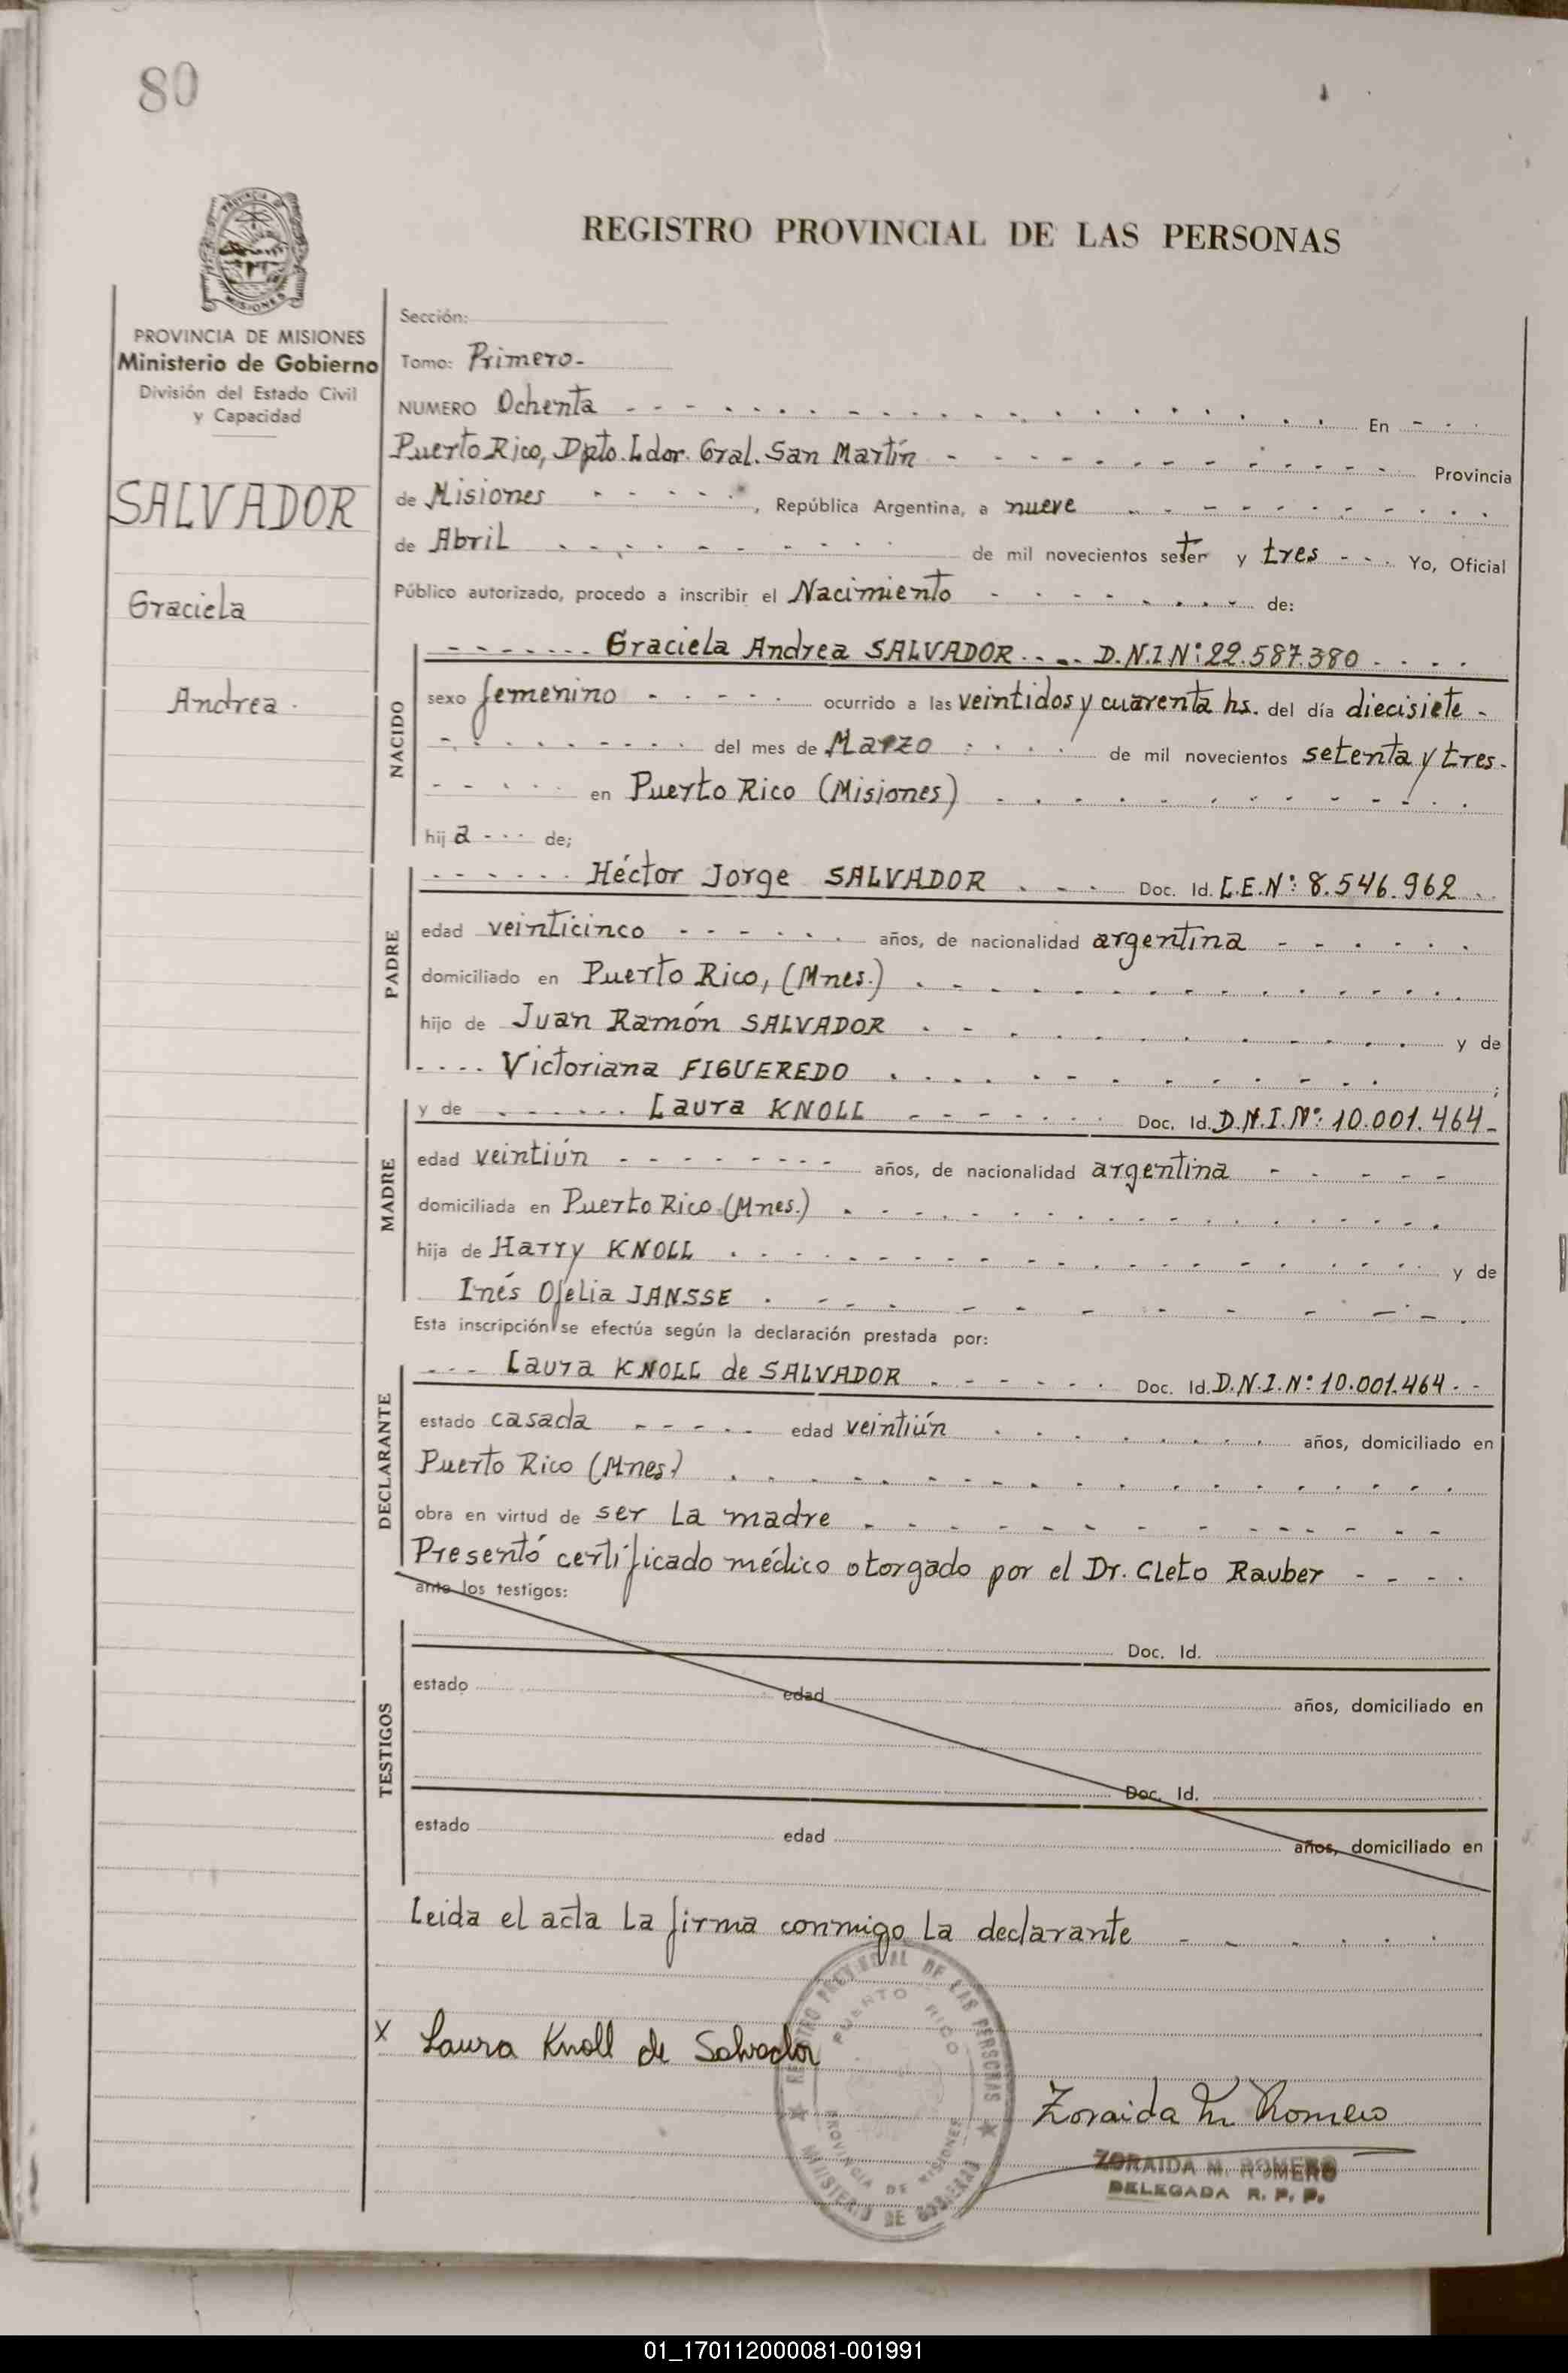 80
REGISTRO PROVINCIAL DE LAS PERSONAS
PROVINCIA DE MISIONES
Ministerio de Gobierno
División del Estado Civil
y Capacidad
SALVADOR
Graciela
Andrea
Sección:
Tomo: Primero-
NUMERO Ochenta En
Puerto Rico, Dpto. Ldor. Gral. San Martín Provincia
de Misiones, República Argentina, a nueve
de Abril de mil novecientos seten y tres Yo, Oficial
Público autorizado, procedo a inscribir el Nacimiento de:
NACIDO
Graciela Andrea SALVADOR D.N.I Nº: 22.587.380
sexo femenino ocurrido a las veintidos y cuarenta hs. del día diecisiete
del mes de Marzo de mil novecientos setenta y tres-
en Puerto Rico (Misiones)
hij a de;
PADRE
Héctor Jorge SALVADOR Doc. Id. L.E. Nº: 8.546.962
edad veinticinco años, de nacionalidad argentina
domiciliado en Puerto Rico, (Mnes.)
hijo de Juan Ramón SALVADOR y de
Victoriana FIGUEREDO ;
MADRE
y de Laura KNOLL Doc. Id. D.N.I. Nº: 10.001.464-
edad veintiún años, de nacionalidad argentina
domiciliada en Puerto Rico (Mnes.)
hija de Harry KNOLL y de
Inés Ofelia JANSSE
Esta inscripción se efectúa según la declaración prestada por:
DECLARANTE
Laura KNOLL de SALVADOR Doc. Id. D.N.I. Nº: 10.001.464
estado casada edad veintiún años, domiciliado en
Puerto Rico (Mnes)
obra en virtud de ser la madre
Presentó certificado médico otorgado por el Dr. Cleto Rauber
ante los testigos:
TESTIGOS
Doc. Id.
estado edad años, domiciliado en
Doc. Id.
estado edad años, domiciliado en
Leida el acta la firma conmigo la declarante
X Laura Knoll de Salvador
REGISTRO PROVINCIAL DE LAS PERSONAS
PUERTO RICO
PROVINCIA DE MISIONES
MINISTERIO DE GOBIERNO
Zoraida M. Romero
ZORAIDA M. ROMERO
DELEGADA R. P. P.
01_170112000081-001991